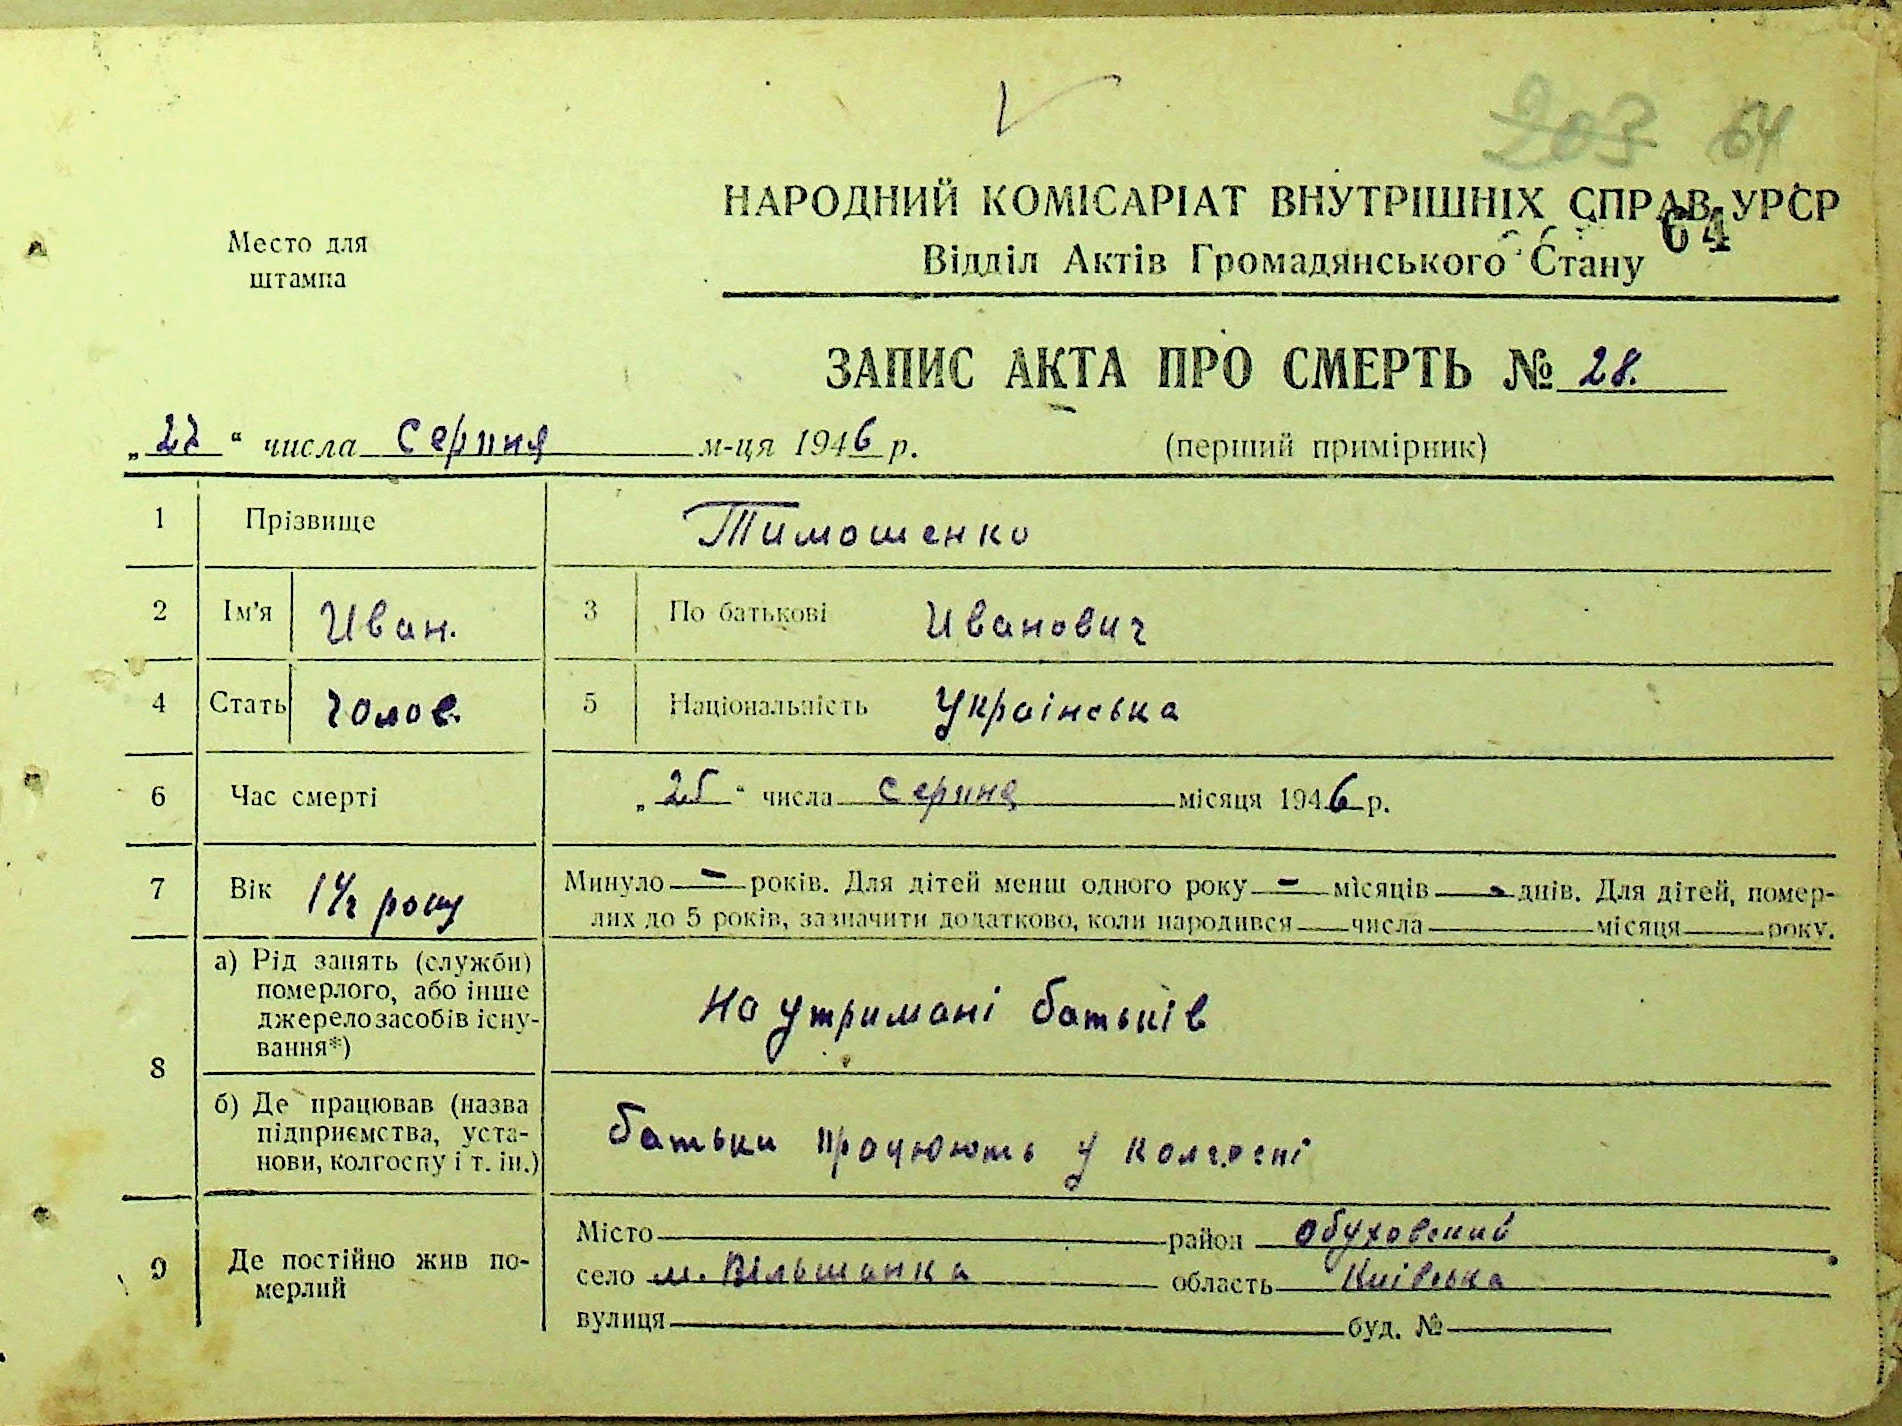 203 64
НАРОДНИЙ КОМІСАРІАТ ВНУТРІШНІХ СПРАВ УРСР
64
Место для
штампа
Відділ Актів Громадянського Стану
ЗАПИС АКТА ПРО СМЕРТЬ № 28.
„ 27 “ числа серпня м-ця 1946 р. (перший примірник)
1 Прізвище Тимошенко
2 Ім'я Иван. 3 По батькові Иванович
4 Стать голов. 5 Національність Українська
6 Час смерті „ 25 “ числа серпня місяця 1946 р.
7 Вік 1 1/2 року Минуло - років. Для дітей менш одного року - місяців - днів. Для дітей, помер-
лих до 5 років, зазначити додатково, коли народився числа місяця року.
8 а) Рід занять (служби)
померлого, або інше
джерело засобів існу-
вання*)
на утримані батьків
б) Де працював (назва
підприємства, уста-
нови, колгоспу і т. ін.)
батьки працюють у колгоспі
9 Де постійно жив по-
мерлий
Місто район Обуховский
село м. Вільшанка область Київська
вулиця буд. №